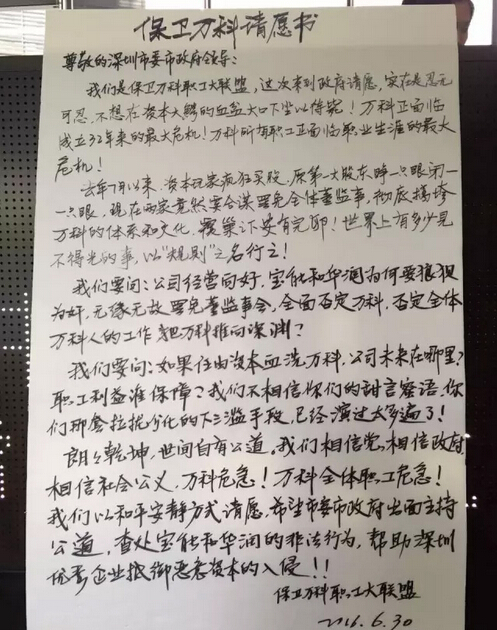 保卫万科请愿书
尊敬的深圳市委市政府领导:
我们是保卫万科职工大联盟,这次来到政府请愿,实在是忍无
可忍,不想在资本大鳄的血盆大口下坐以待毙!万科正面临
成立32年来的最大危机!万科所有职工正面临职业生涯的最大
危机!
去年7月以来,资本玩家疯狂买股,原第一大股东睁一只眼闭一
一只眼,现在两家竟然妄合谋罢免全体董监事,彻底搞垮
万科的体系和文化,覆巢之下安有完卵!世界上有多少见
不得光的事,以“规则”之名行之!
我们要问:公司经营向好,宝能和华润为何要狼狈
为奸,无缘无故罢免董监事会,全面否定万科,否定全体
万科人的工作,把万科推向深渊?
我们要问:如果任由资本血洗万科,公司未来在哪里?
职工利益谁保障?我们不相信你们的甜言蜜语,你
们那套拉拢分化的下三滥手段,已经演过太多遍了!
朗朗乾坤,世间自有公道。我们相信党,相信政府
相信社会公义,万科危急!万科全体职工危急!
我们以和平安静方式请愿,希望市委市政府出面主持
公道,查处宝能和华润的非法行为,帮助深圳
优秀企业抵御恶意资本的入侵!!
保卫万科职工大联盟
2016.6.30